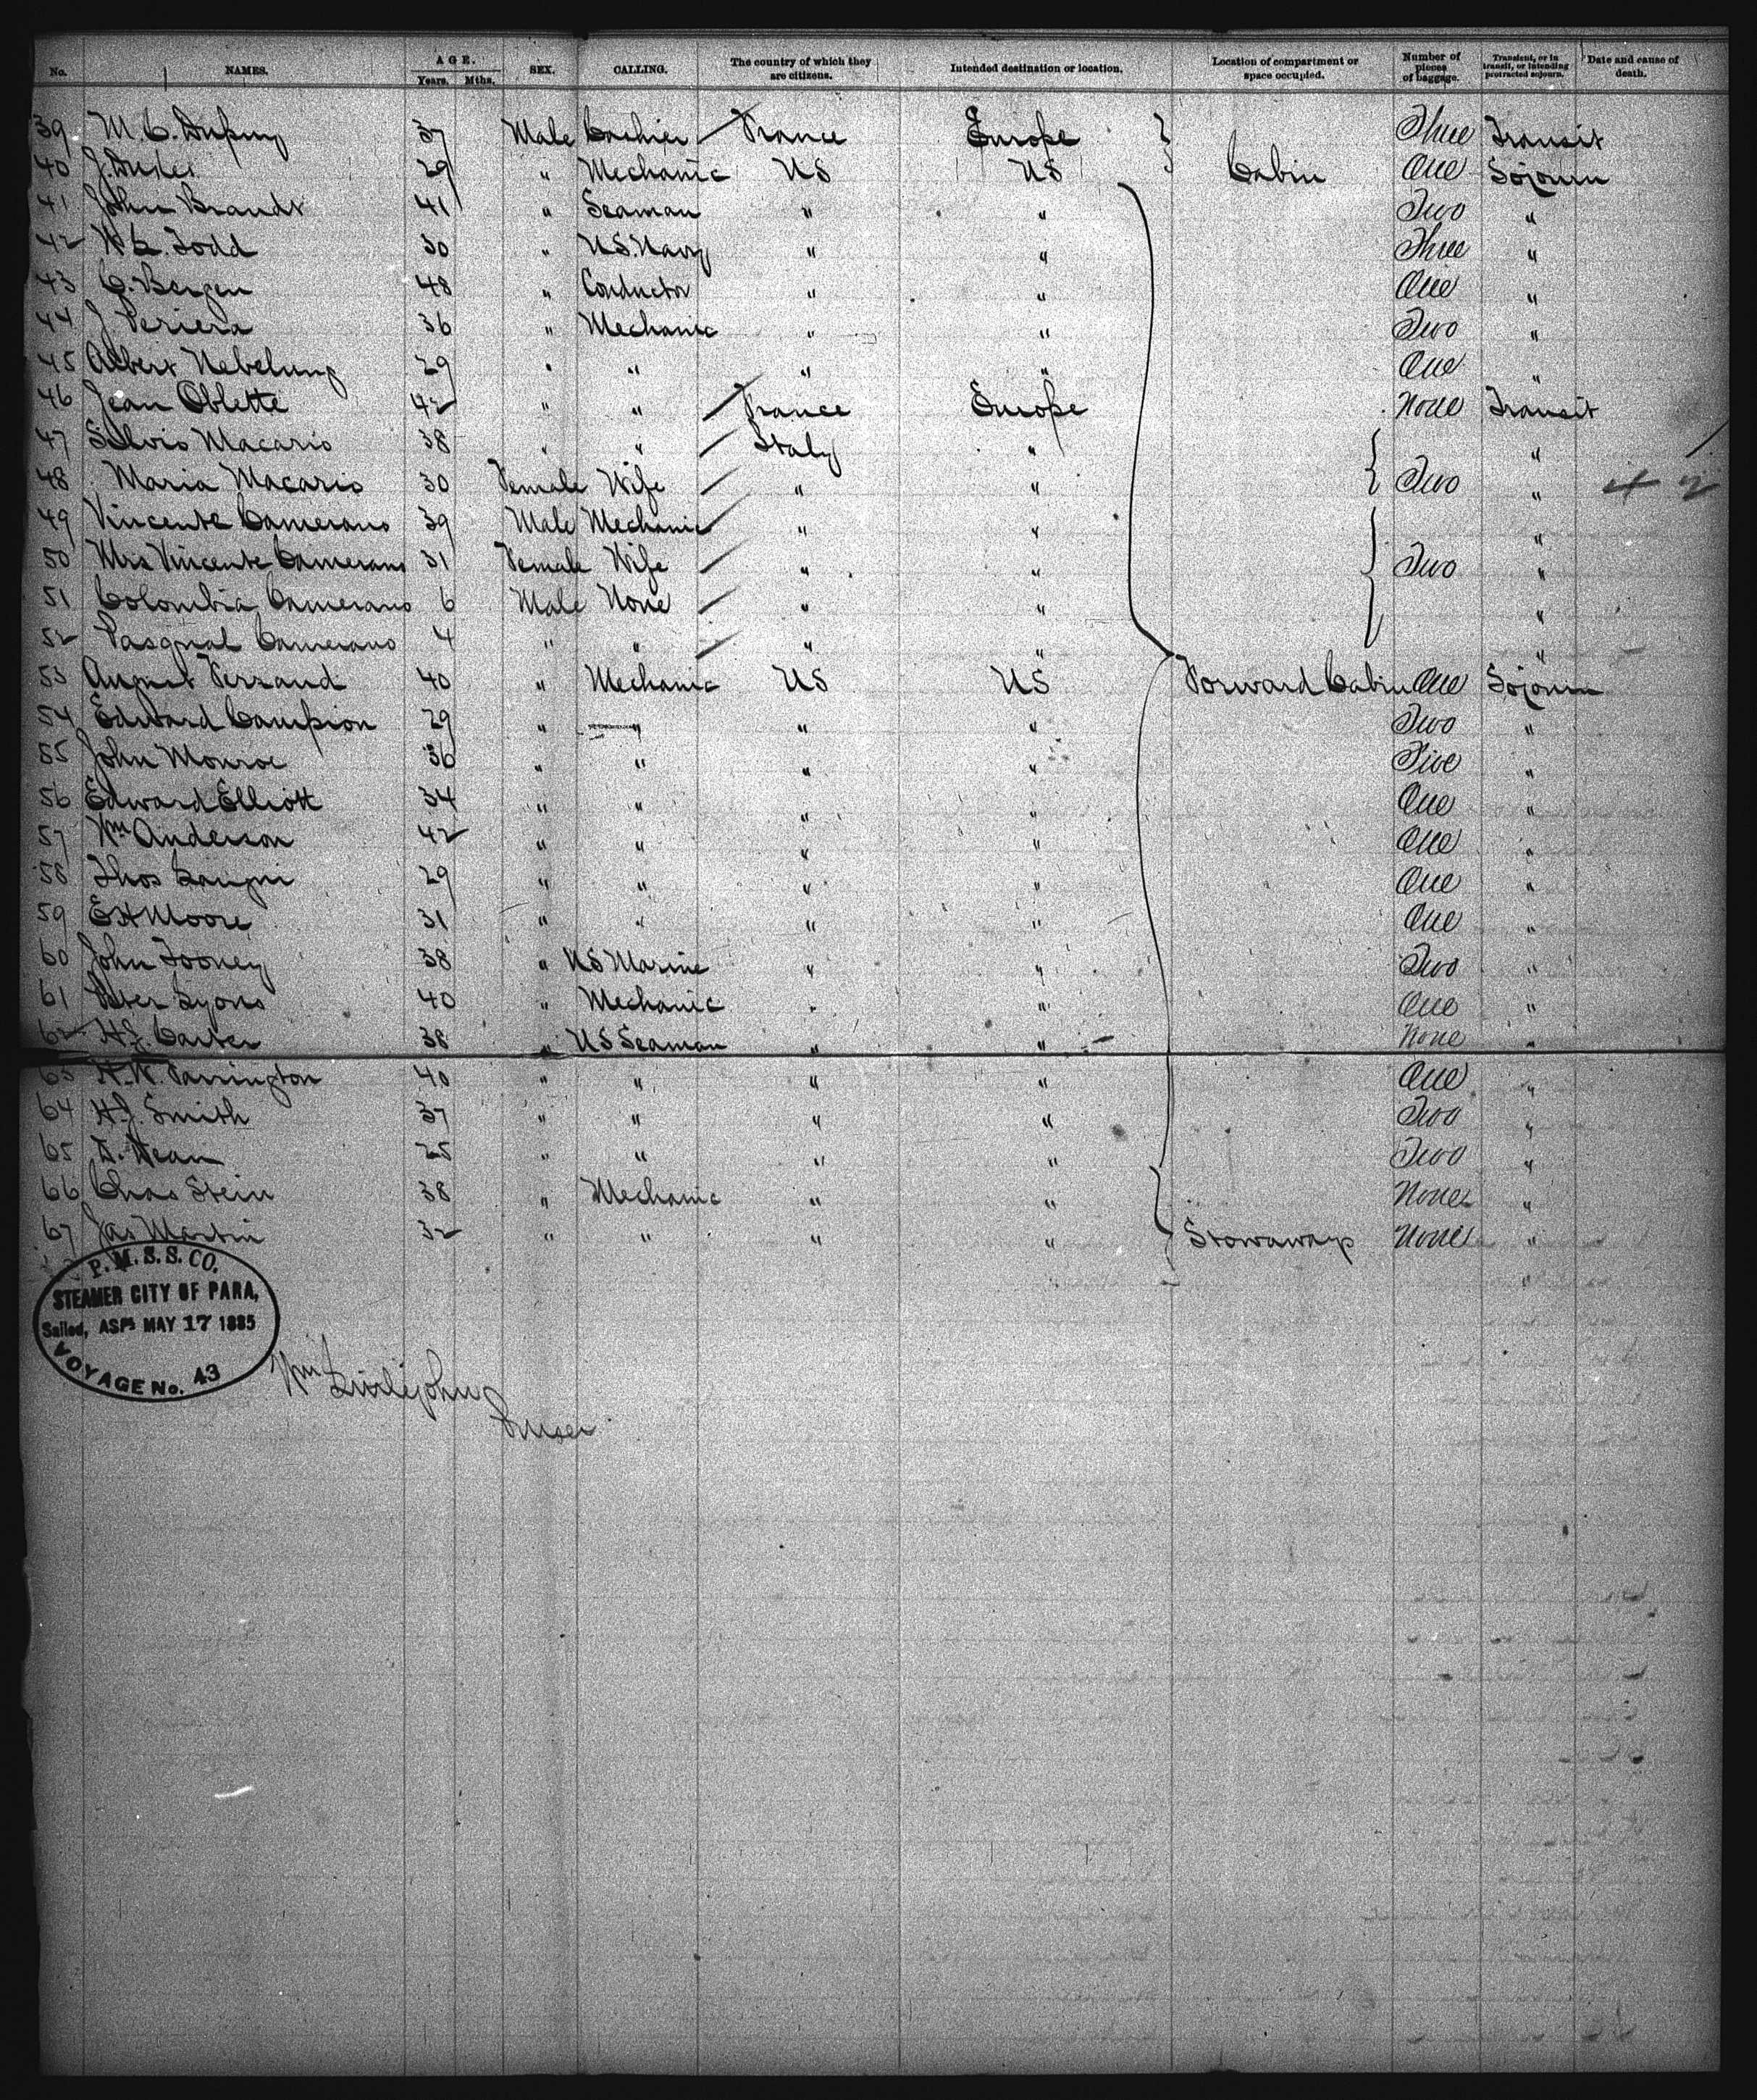 No. NAMES. AGE. Years. Mths. SEX. CALLING. The country of which they are citizens. Intended destination or location. Location of compartment or space occupied. Number of pieces of baggage. Transient, or in transit, or intending protracted sojourn. Date and cause of death.
39 M. C. Dupuy 37 Male Cashier France Europe Three Transit
40 J. 29 " Mechanic US US Cabin One Sojourn
41 John Brandt 41 " Seaman " " Two "
42 Todd 30 " US. Navy " " Three "
43 C. Bergen 48 " Conductor " " One "
44 J. Periera 36 " Mechanic " " Two "
45 Albert Nebelung 29 " " " " One "
46 Jean Oblette 42 " " France Europe None Transit
47 Silvio Macario 38 " " Italy " "
48 Maria Macario 30 Female Wife " " Two "
49 Vincente Camerano 39 Male Mechanic " " "
50 Mrs Vincente Camerano 31 Female Wife " " Two "
51 Colombia Camerano 6 Male None " " "
52 Pasqual Camerano 4 " " " " "
53 August Ferrand 40 " Mechanic US US Forward Cabin One Sojourn
54 Edward Campion 29 " " " " Two "
55 John Monroe 36 " " " " Five "
56 Edward Elliott 34 " " " " One "
57 Wm Anderson 42 " " " " One "
58 Thos 29 " " " " One "
59 E H Moore 31 " " " " One "
60 John Tooney 38 " US Marine " " Two "
61 Peter Lyons 40 " Mechanic " " One "
62 H. J. Carter 38 " US Seaman " " None "
63 H. W. Farrington 40 " " " " One "
64 H. J. Smith 37 " " " " Two "
65 D. Dean 25 " " " " Two "
66 Chas Stein 38 " Mechanic " " None "
67 Jas Martin 32 " " " " Stowaways None "
"
P. M. S. S. CO.
STEAMER CITY OF PARA,
Sailed, ASPl MAY 17 1885
VOYAGE No. 43
Wm Littlejohn
Purser